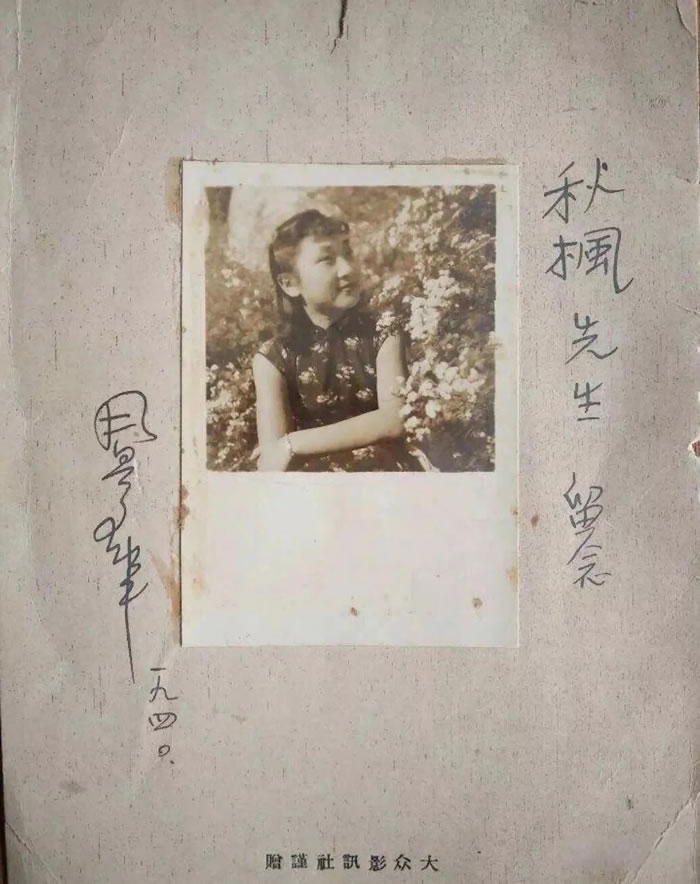 秋楓先生 留念
周曼華
一九四〇.
大众影訊社謹贈